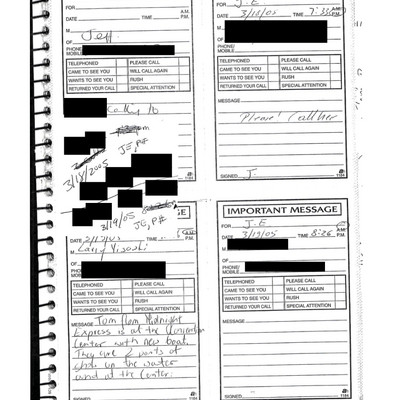 FOR
DATE TIME A.M. P.M.
M Jeff
OF
PHONE/
MOBILE
TELEPHONED PLEASE CALL
CAME TO SEE YOU WILL CALL AGAIN
WANTS TO SEE YOU RUSH
RETURNED YOUR CALL SPECIAL ATTENTION
JE, P#
3/18/2005
3/19/05
JE, P#
FOR J.E
DATE 3/18/05 TIME A.M. P.M.
M
OF
PHONE/
MOBILE
TELEPHONED PLEASE CALL
CAME TO SEE YOU WILL CALL AGAIN
WANTS TO SEE YOU RUSH
RETURNED YOUR CALL SPECIAL ATTENTION
MESSAGE
Please call her
SIGNED J.
1184
GE
DATE TIME P.M.
M
OF
PHONE/
MOBILE
TELEPHONED PLEASE CALL
CAME TO SEE YOU WILL CALL AGAIN
WANTS TO SEE YOU RUSH
RETURNED YOUR CALL SPECIAL ATTENTION
MESSAGE Tom from Midnight
Express is at the Convention
Center with new boat.
They are 2 units at
the water
and at the Center.
SIGNED
1184
IMPORTANT MESSAGE
FOR J.E
DATE 3/19/05 TIME 8:26 A.M. P.M.
M
OF
PHONE/
MOBILE
TELEPHONED PLEASE CALL
CAME TO SEE YOU WILL CALL AGAIN
WANTS TO SEE YOU RUSH
RETURNED YOUR CALL SPECIAL ATTENTION
MESSAGE
SIGNED
1184